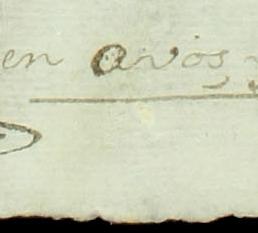 en avos